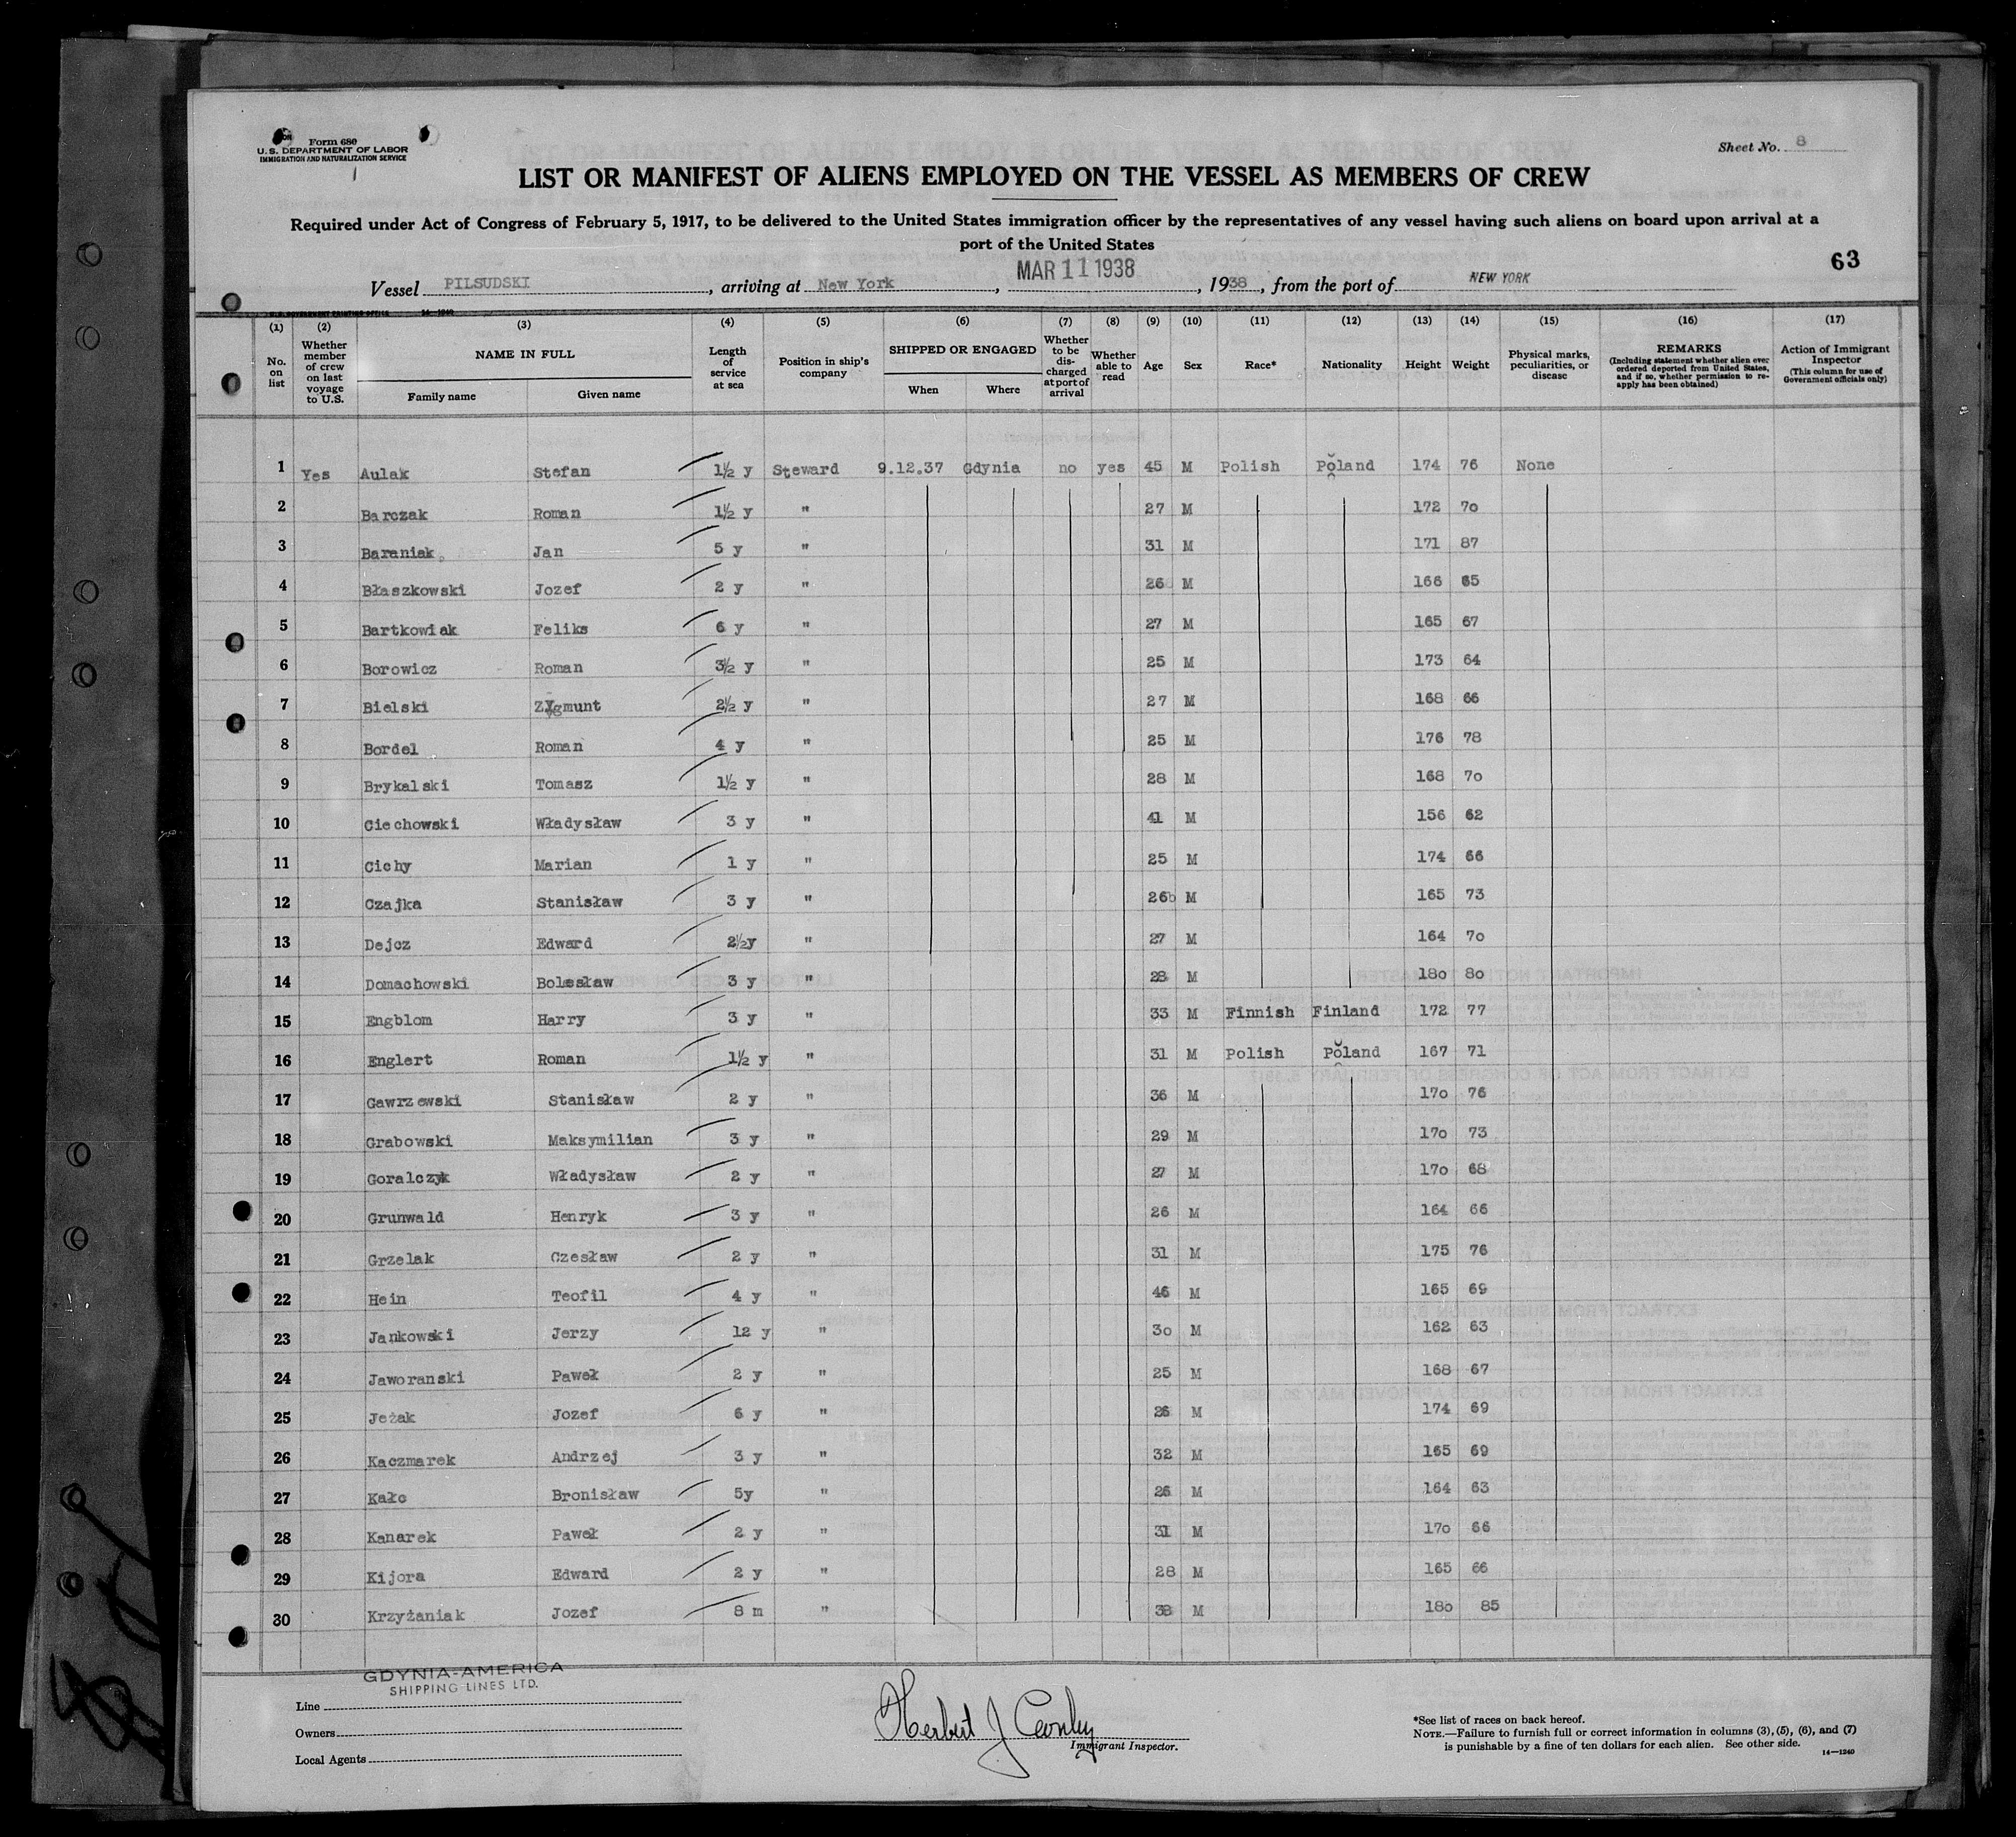 Form 680
U. S. DEPARTMENT OF LABOR
IMMIGRATION AND NATURALIZATION SERVICE
Sheet No. 8
LIST OR MANIFEST OF ALIENS EMPLOYED ON THE VESSEL AS MEMBERS OF CREW
Required under Act of Congress of February 5, 1917, to be delivered to the United States immigration officer by the representatives of any vessel having such aliens on board upon arrival at a
port of the United States
63
Vessel PILSUDSKI, arriving at New York, MAR 11 1938, 1938, from the port of NEW YORK
(1) (2) (3) (4) (5) (6) (7) (8) (9) (10) (11) (12) (13) (14) (15) (16) (17)
No. on list
Whether member of crew on last voyage to U.S.
NAME IN FULL
Family name
Given name
Length of service at sea
Position in ship's company
SHIPPED OR ENGAGED
When
Where
Whether to be discharged at port of arrival
Whether able to read
Age
Sex
Race*
Nationality
Height
Weight
Physical marks, peculiarities, or disease
REMARKS
(Including statement whether alien ever ordered deported from United States, and if so, whether permission to reapply has been obtained)
Action of Immigrant Inspector
(This column for use of Government officials only)
1 Yes Aulak Stefan 1½ y Steward 9.12.37 Gdynia no yes 45 M Polish Poland 174 76 None
2 Barczak Roman 1½ y " 27 M 172 70
3 Baraniak Jan 5 y " 31 M 171 87
4 Błaszkowski Jozef 2 y " 26 M 166 65
5 Bartkowiak Feliks 6 y " 27 M 165 67
6 Borowicz Roman 3½ y " 25 M 173 64
7 Bielski Zygmunt 2½ y " 27 M 168 66
8 Bordel Roman 4 y " 25 M 176 78
9 Brykalski Tomasz 1½ y " 28 M 168 70
10 Ciechowski Władysław 3 y " 41 M 156 62
11 Cichy Marian 1 y " 25 M 174 66
12 Czajka Stanisław 3 y " 26 M 165 73
13 Dejcz Edward 2½y " 27 M 164 70
14 Domachowski Bolesław 3 y " 28 M 180 80
15 Engblom Harry 3 y " 33 M Finnish Finland 172 77
16 Englert Roman 1½ y " 31 M Polish Poland 167 71
17 Gawrzewski Stanisław 2 y " 36 M 170 76
18 Grabowski Maksymilian 3 y " 29 M 170 73
19 Goralczyk Władysław 2 y " 27 M 170 68
20 Grunwald Henryk 3 y " 26 M 164 66
21 Grzelak Czesław 2 y " 31 M 175 76
22 Hein Teofil 4 y " 46 M 165 69
23 Jankowski Jerzy 12 y " 30 M 162 63
24 Jaworanski Paweł 2 y " 25 M 168 67
25 Jeżak Jozef 6 y " 26 M 174 69
26 Kaczmarek Andrzej 3 y " 32 M 165 69
27 Kałc Bronisław 5y " 26 M 164 63
28 Kanarek Paweł 2 y " 31 M 170 66
29 Kijora Edward 2 y " 28 M 165 66
30 Krzyżaniak Jozef 8 m " M 180 85
GDYNIA-AMERICA
SHIPPING LINES LTD.
Line
Owners
Local Agents
Herbert J Conley
Immigrant Inspector.
*See list of races on back hereof.
NOTE.—Failure to furnish full or correct information in columns (3), (5), (6), and (7)
is punishable by a fine of ten dollars for each alien. See other side.
14—1240